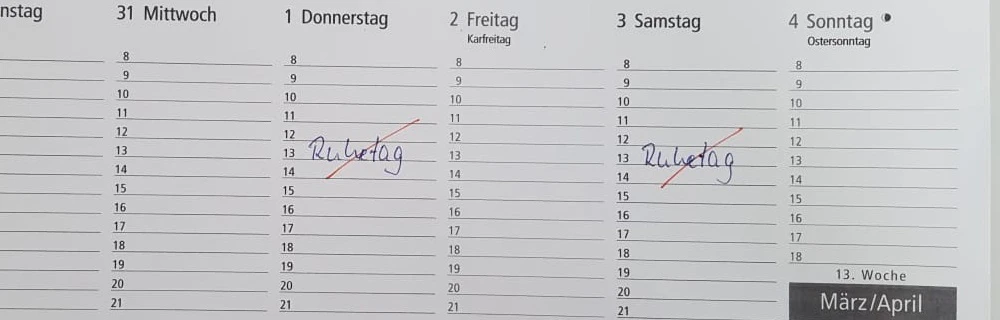 nstag
31 Mittwoch
8
9
10
11
12
13
14
15
16
17
18
19
20
21
1 Donnerstag
8
9
10
11
12
13 Ruhetag
14
15
16
17
18
19
20
21
2 Freitag
Karfreitag
8
9
10
11
12
13
14
15
16
17
18
19
20
21
3 Samstag
8
9
10
11
12
13 Ruhetag
14
15
16
17
18
19
20
21
4 Sonntag
Ostersonntag
8
9
10
11
12
13
14
15
16
17
18
13. Woche
März/April